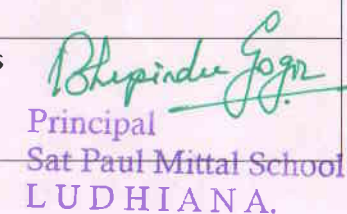 s
Bhupinder Gogia
Principal
Sat Paul Mittal School
LUDHIANA.